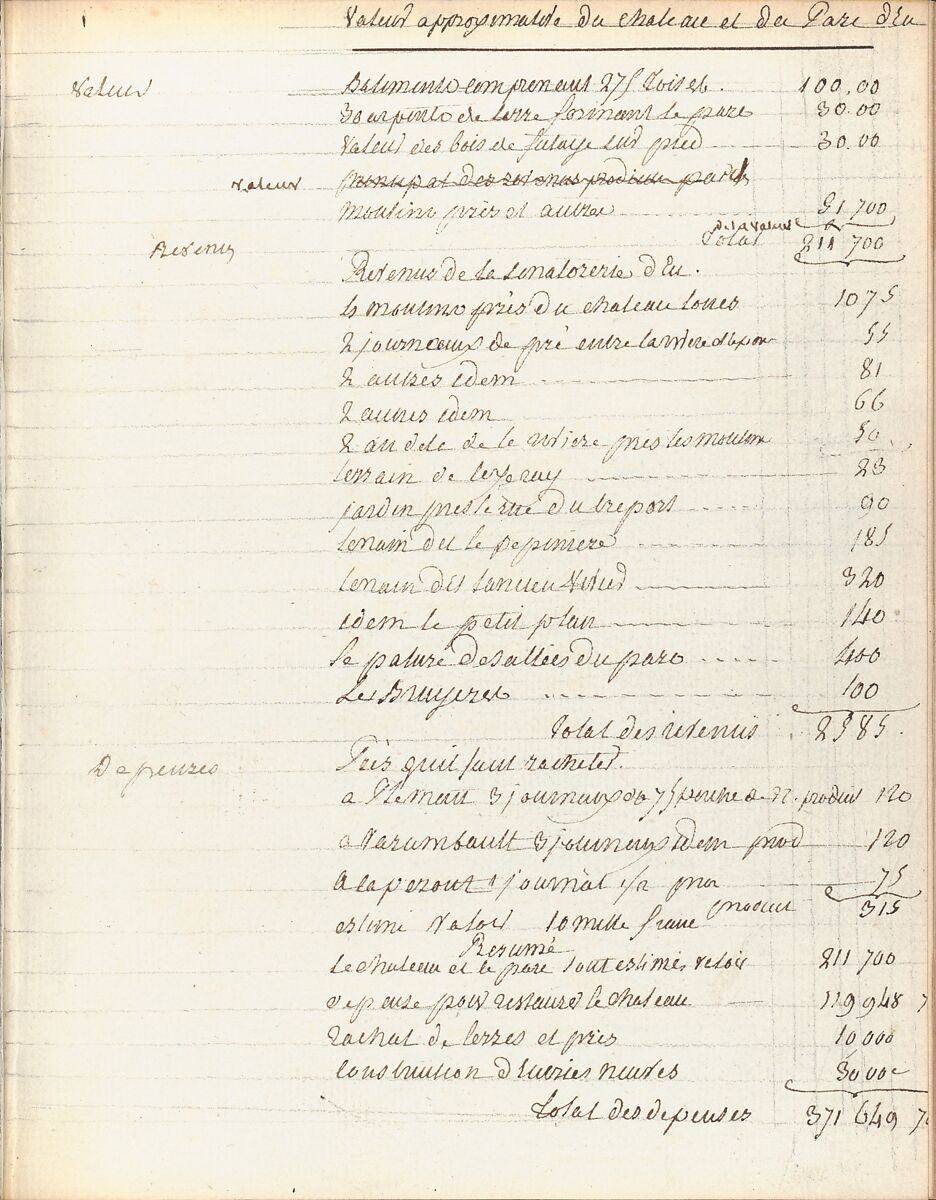 1
Valeur approximative du chateau et du Parc d'Eu
Valeur Batiments comprenant 275 toises. 100.00
30 arpents de terre formant le parc 30.00
Valeur des bois de futaye sur pied 30.00
valeur principal des revenus produits par les
moulins près et autres 51 700
de la valeur
Total 211 700
Revenus
Revenus de la senatorerie d'Eu.
les moulins près du chateau loués 1075
2 journeaux de pré entre la rivière 55
2 autres idem 81
2 autres idem 66
2 au dela de la riviere près les moulins 50
terrain de 23
jardin près le rue du treport 90
terrain dit le pepiniere 185
terrain dit lancien 320
idem le petit plan 140
le pature des allées du parc 400
Les Bruyeres 100
Total des revenus 2585.
Depenses Près quil faut racheter.
a 3 journeaux de 75 perche de 22. produit 120
a 3 journeaux idem prod 120
a 1 journal 1/2 75
produit 315
estimé valoir 10 mille franc
Resumé
Le chateau et le parc sont estimés valoir 211 700
depense pour restaurer le chateau 119 948 7
rachat de terres et près 10 000
construction d'Ecuries neuves 30 000
Total des depenses 371 649 7